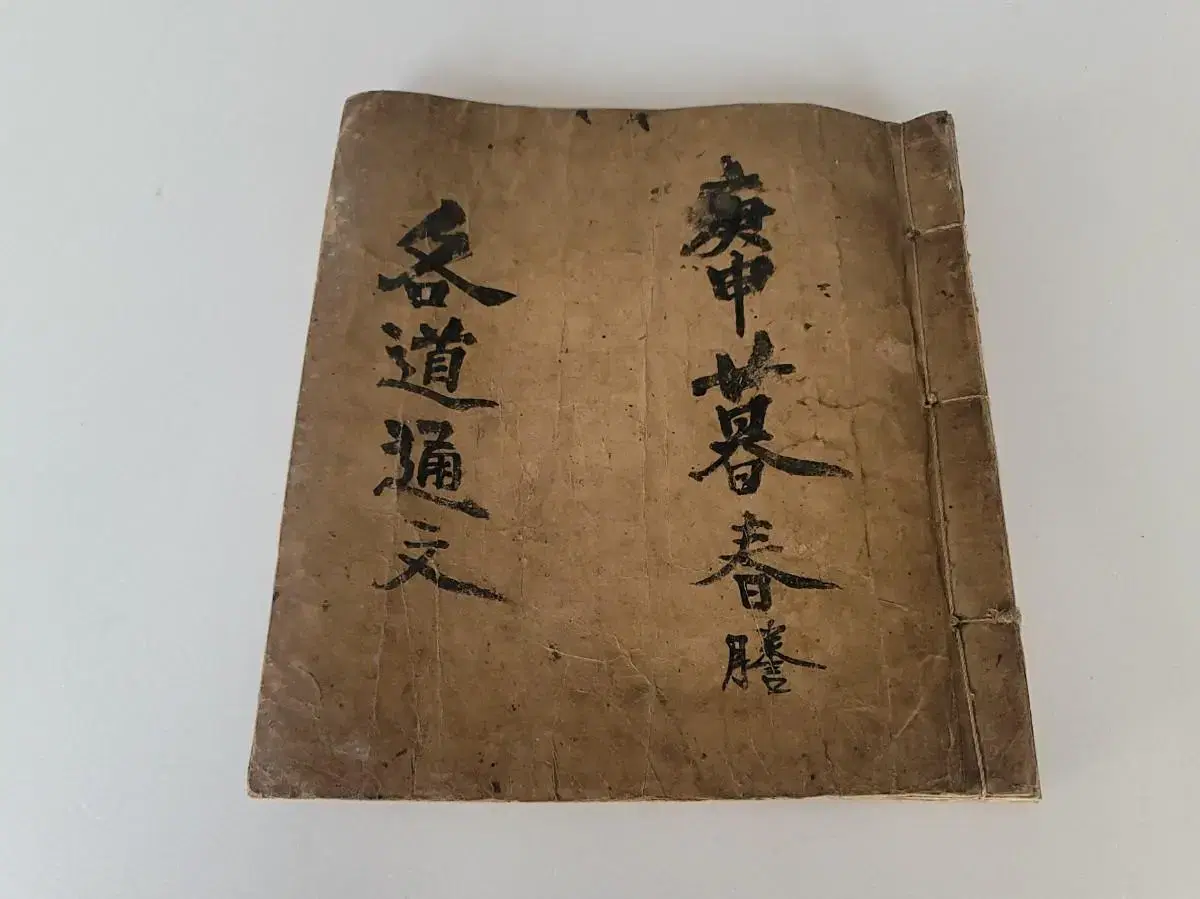 庚申暮春謄
各道通文